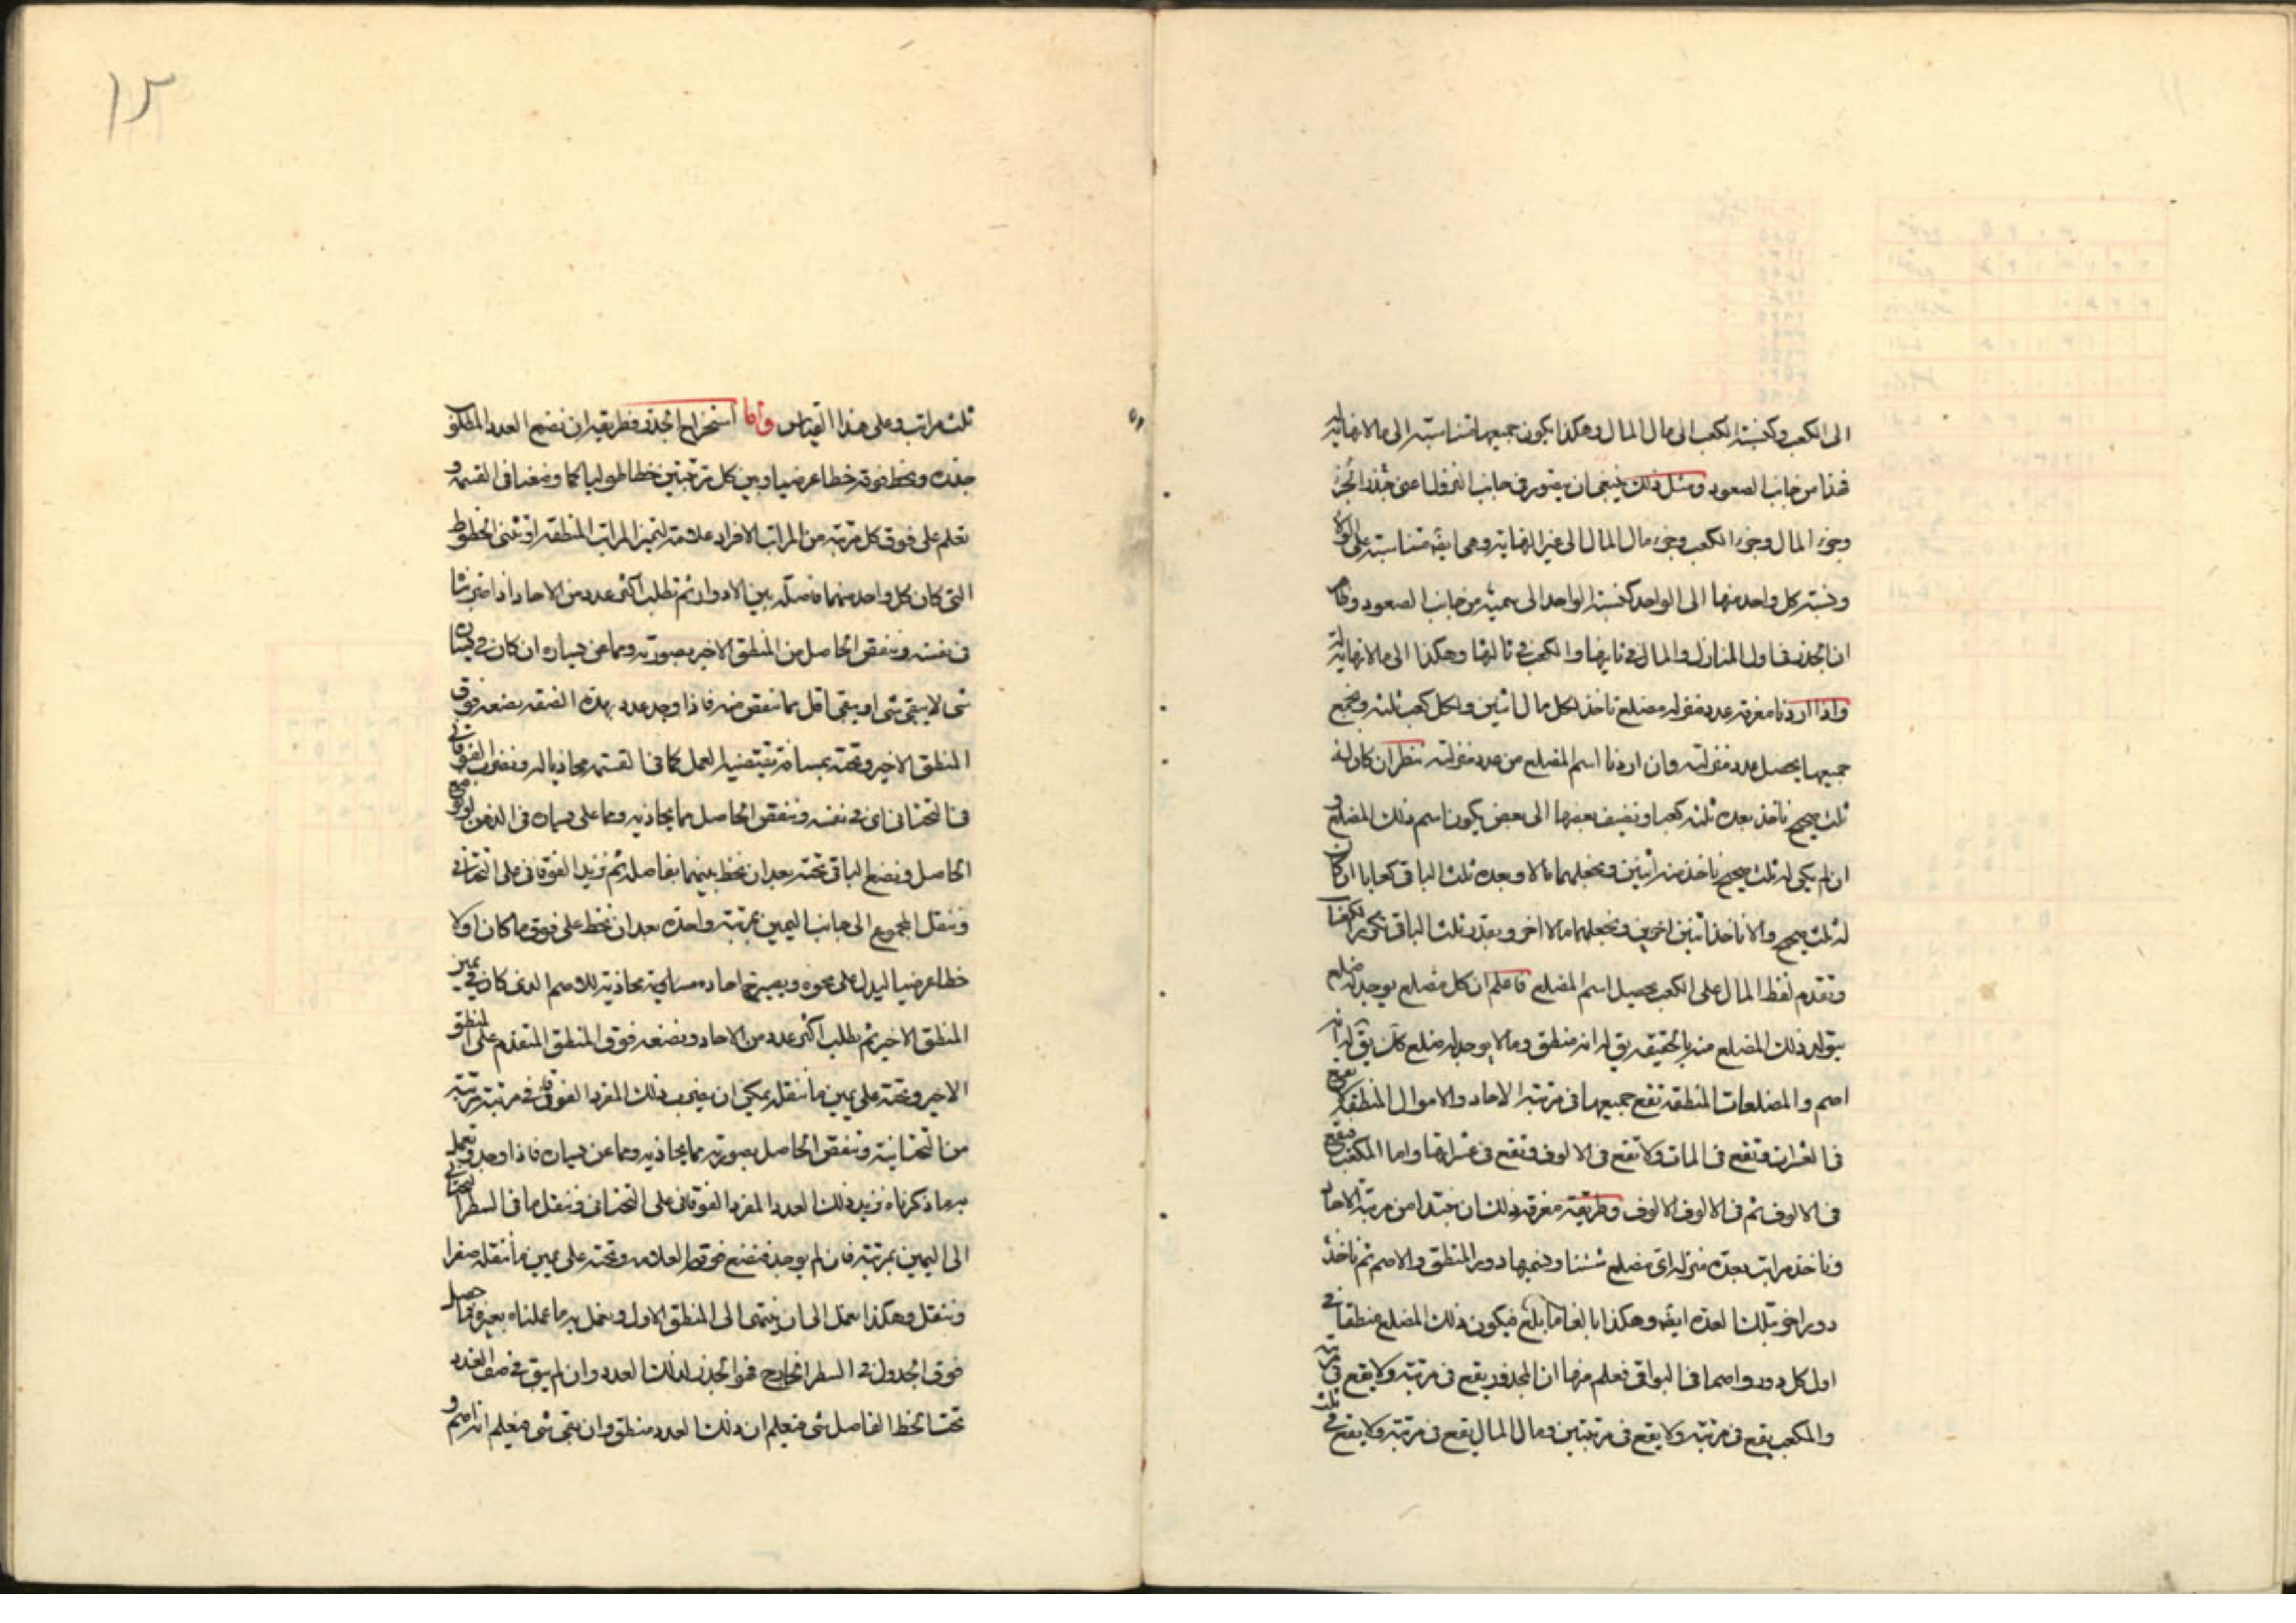 الى الكعب وكنسبة الكعب الى مال المال وهكذا يكون جميعها متناسبة الى مالا نهاية له
فهذا من جانب الصعود ومثل ذلك ينبغى ان يتصور فى جانب النزول اعنى جذر الجزء
وجزء المال وجزء الكعب وجزء مال المال الى غير النهاية وهى ايضه متناسبة على الولاء
ونسبة كل واحد منها الى الواحد كنسبة الواحد الى سميه من جانب الصعود
ان الجذر فى اول المنازل والمال فى ثانيها والكعب فى ثالثها وهكذا الى مالا نهاية له
واذا اردنا معرفة عدد منزلة مضلع ناخذ لكل مال اثنين ولكل كعب ثلثة ونجمع
جميعها يحصل عدد منزلته وان اردنا اسم المضلع من عدد منزلته ننظر ان كان له
ثلث صحيح ناخذ بعده ثلثه كعبا ونضيف بعضها الى بعض يكون اسم ذلك المضلع و
ان لم يكن له ثلث صحيح ناخذ منه اثنين ونجعلهما مالا وبعده ثلث الباقى كعابا ان كان
له ثلث صحيح والا ناخذ اثنين اخرين ونجعلهما مالا اخر وبعدد ثلث الباقى
ونقدم لفظ المال على الكعب يحصل اسم المضلع فاعلم ان كل مضلع يوجد له ضلع
يتولد ذلك المضلع منه بالحقيقة يق له انه منطق وما لا يوجد له ضلع كك يق له انه
اصم والمضلعات المنطقة تقع جميعها فى مرتبة الاحاد والاموال المنطقة
فى العشرات وتقع فى المات ولا تقع فى الالوف وتقع فى عشراتها واما المكعب فيقع
فى الالوف ثم فى الالوف الالوف وطريقة معرفة ذلك ان نبتدا من مرتبة الاحاد
وناخذ مراتب بعدة منزلة اى مضلع شئنا ونسميها دور المنطق والاصم ثم ناخذ
دورا اخر بتلك العدة ايضه وهكذا بالغا ما بلغ فيكون ذلك المضلع منطقا فى
اول كل دور واصما فى البواقى فعلم منها ان المجذور يقع فى مرتبة ولا يقع فى مرتبة
والمكعب يقع فى مرتبة ولا يقع فى مرتبتين ومال المال يقع فى مرتبة ولا يقع فى ثلث
١٢
ثلث مراتب وعلى هذا القياس واما استخراج الجذر فطريقه ان نضع العدد المطلوب
جذره ونخط فوقه خطا عرضيا وبين كل مرتبتين خطا طوليا كما وضعنا فى القسمة و
نعلم على فوق كل مرتبة من المراتب الافراد علامة لتميز المراتب المنطقة او نثنى الخطوط
التى كان كل واحد منها فاصلة بين الادوار ثم نطلب اكثر عدد من الاحاد اذا ضربناه
فى نفسه وننقص الحاصل من المنطق الاخير بصورته ومما عن يساره ان كان فى يساره
شى لا يبقى شى او يبقى اقل مما ننقص منه فاذا وجد عدد بهذه الصفة نضعه فوق
المنطق الاخير وتحته بمسافة تقتضيها العمل كما فى القسمة محاذيا له ونضرب الفوقانى
فى التحتانى اى فى نفسه وننقص الحاصل مما يحاذيه ومما على يساره
الحاصل ونضع الباقى تحته بعد ان نخط بينهما بفاصلة ثم نزيد الفوقانى على التحتانى
وننقل المجموع الى جانب اليمين بمرتبة واحدة بعد ان نخط على فوق ما كان اولا
خطا عرضيا ليدل على محوه ويصير احاده محاذية للاصم الذى كان فى يمين
المنطق الاخير ثم نطلب اكثر عدد من الاحاد ونضعه فوق المنطق المتقدم على المنطق
الاخير وتحته على يمين ما ننقله يمكن ان يضرب ذلك المفرد الفوقانى فى مرتبة مرتبة
من التحتانية وننقص الحاصل بصورته مما يحاذيه ومما عن يساره فاذا وجد ونعمل
به ما ذكرناه نزيد ذلك العدد المفرد الفوقانى على التحتانى وننقل ما فى السطر التحتانى
الى اليمين بمرتبة فان لم يوجد فنضع فوق العلامة وتحته على يمين ما ننقله صفرا
وننقل وهكذا نعمل الى ان ينتهى الى المنطق الاول ونعمل به ما عملناه بغيره فما حصل
فوق الجدول فى السطر الخارج فهو الجذر لذلك العدد وان لم يبق فى صف العدد
تحت الخط الفاصل شى فنعلم ان ذلك العدد منطق وان بقى شى فنعلم انه اصم و